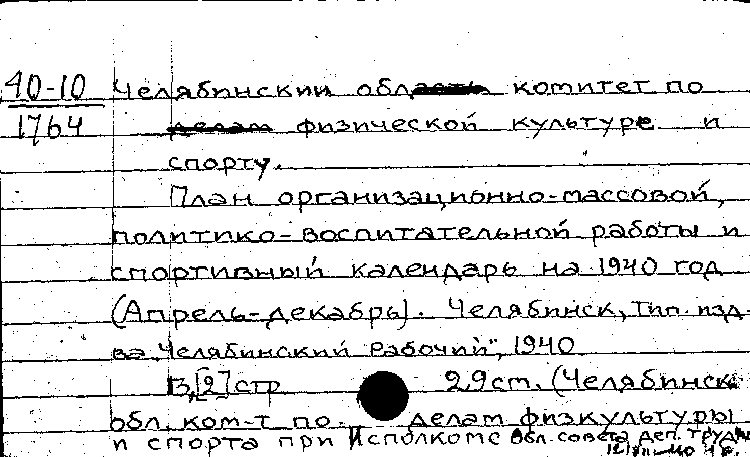 40-10 Челябинский обл. комитет по
1764 физической культуре и
спорту.
План организационно-массовой,
политико-воспитательной работы и
спортивный календарь на 1940 год
(Апрель-декабрь). Челябинск, Тип. изд-
ва "Челябинский рабочий", 1940
13,[2] стр 29 ст. (Челябинск.
обл. ком-т по делам физкультуры
и спорта при Исполкоме Обл. совета деп. труд